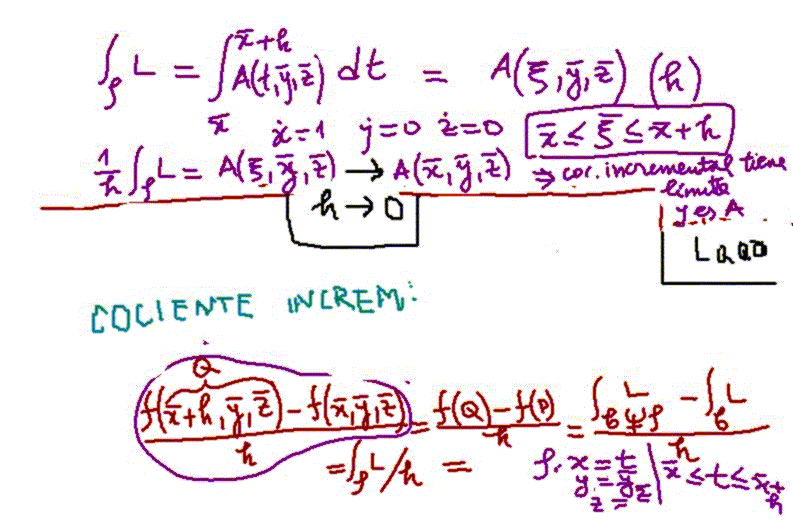 ∫_ρ L = ∫_x̄^{x̄+h} A(t,ȳ,z̄) dt = A(ξ̄,ȳ,z̄) (h)
ẋ=1 ẏ=0 ż=0 x̄ ≤ ξ̄ ≤ x̄+h
1/h ∫_ρ L = A(ξ̄,ȳ,z̄) → A(x̄,ȳ,z̄) ⇒ coc. incremental tiene
límite
y es A
h → 0
LQQD
COCIENTE INCREM:
Q
(f(x̄+h,ȳ,z̄) − f(x̄,ȳ,z̄))/h = (f(Q) − f(P))/h = (∫_{φΨρ} L − ∫_φ L)/h
= ∫_ρ L/h = ρ. x = t | x̄ ≤ t ≤ x̄+h
y = ȳ
z = z̄